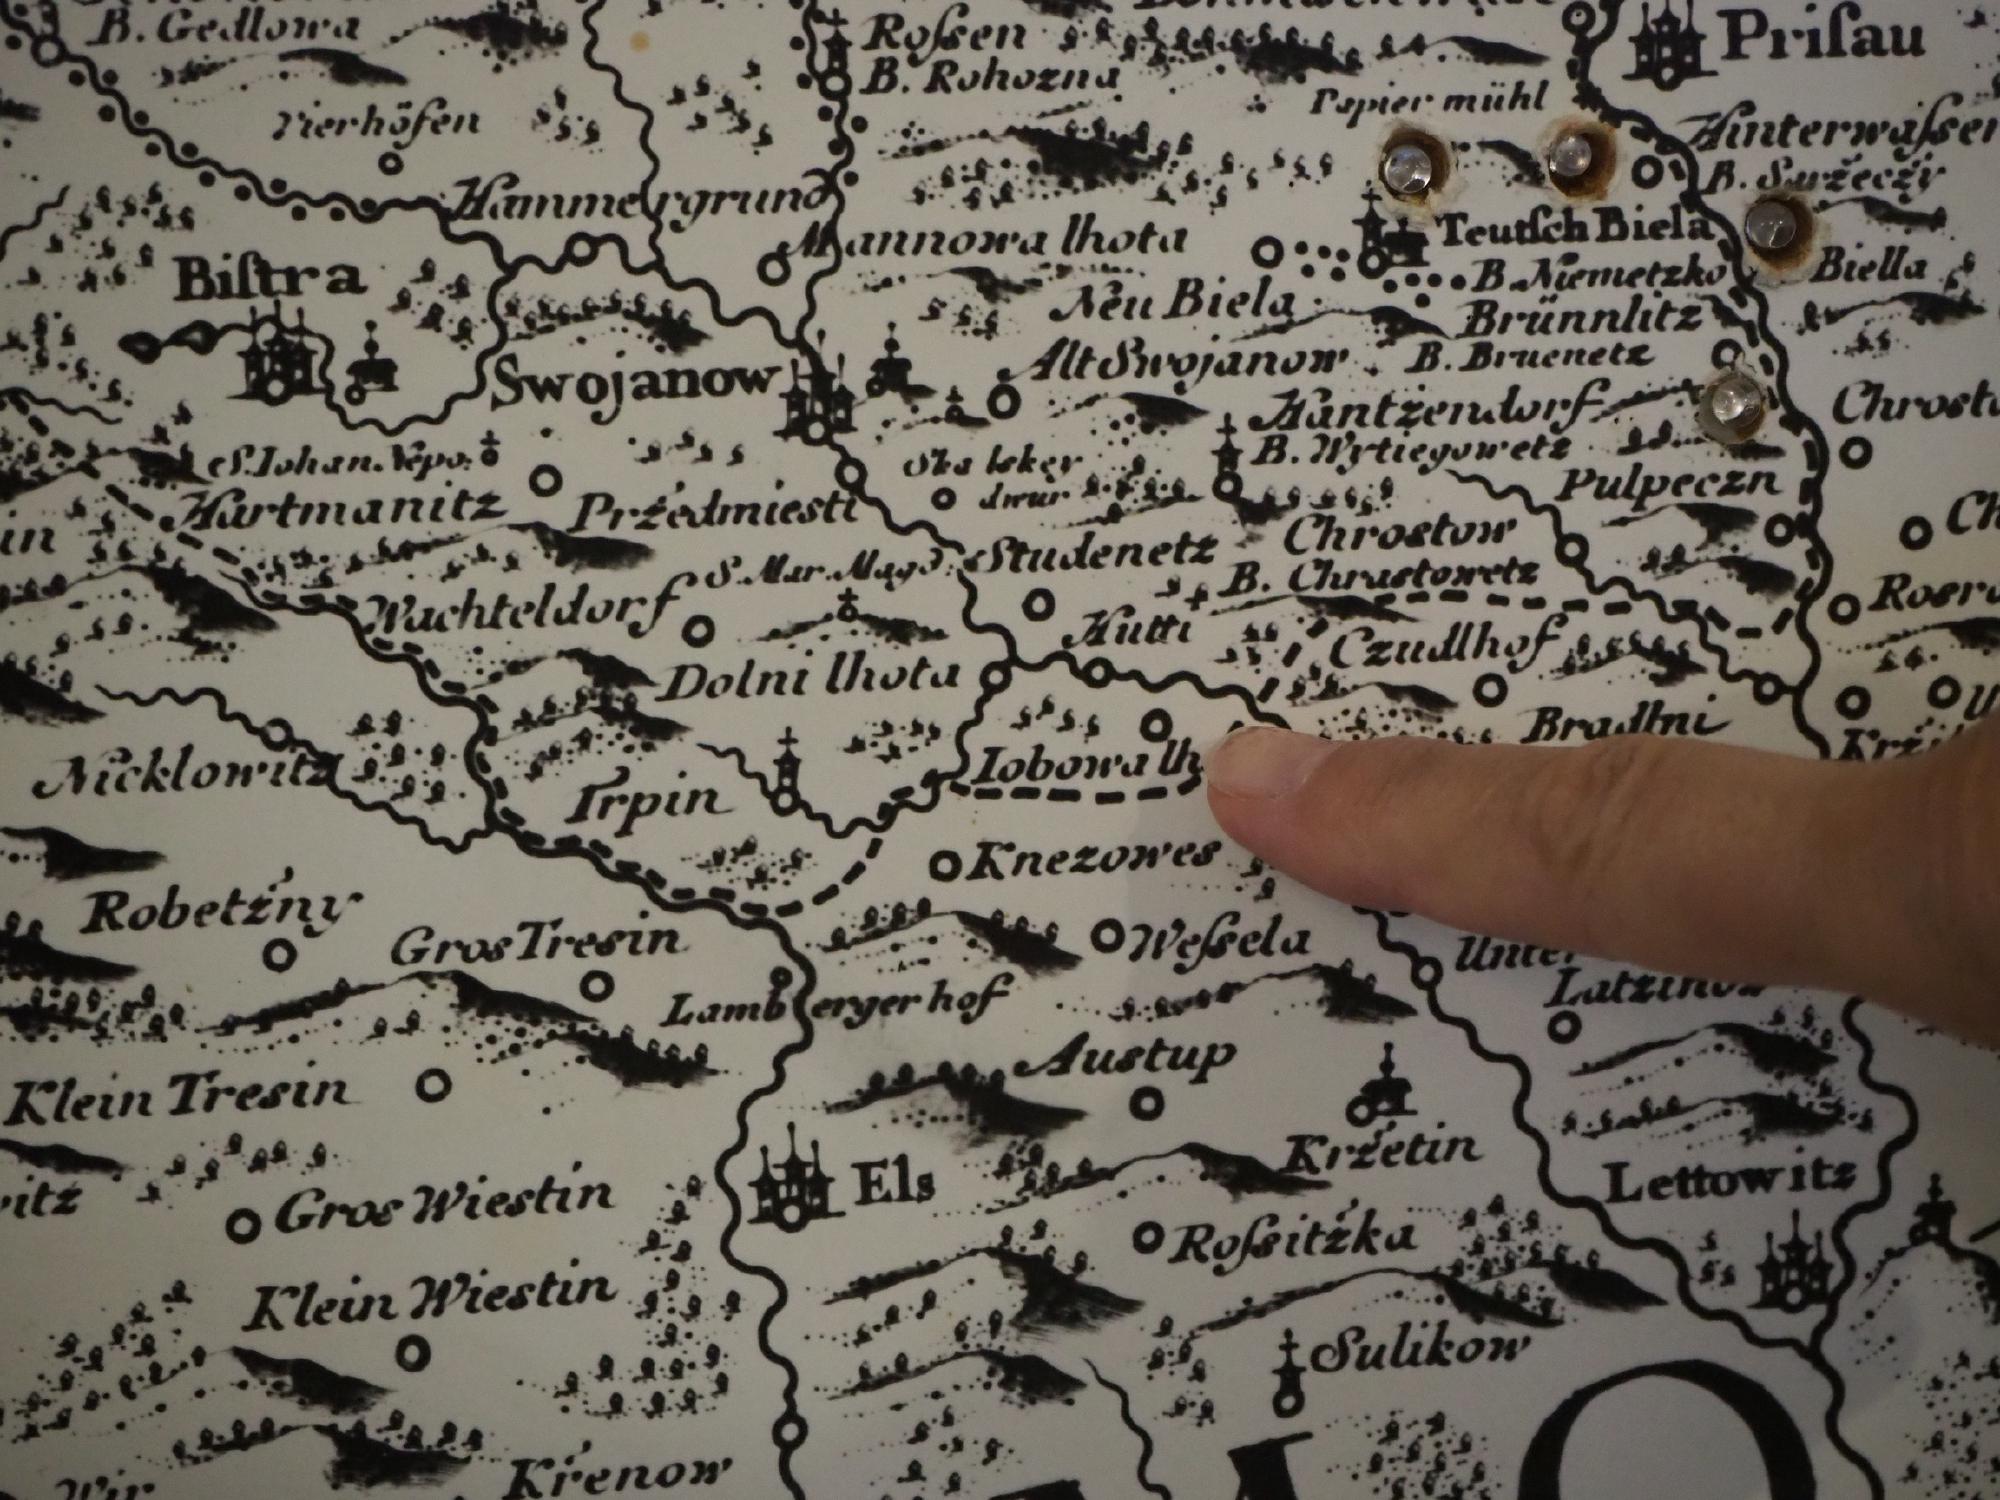 B. Gedlowa
Roſsen
B. Rohozna
Priſau
Papier mühl
Vierhöfen
Hinterwaſser
Hammergrund
Mannowa lhota
Teutſch Biela
B. Niemetzko
Biella
Biſtra
Neu Biela
Brünnlitz
B. Bruenetz
Swojanow
Alt Swojanow
Hantżendorf
B. Wytiegowetz
Chrost
S. Iohan. Nepo.
Hartmanitz
Prźedmiesti
dwur
Pulpeczn
in
Ch
Studenetz
Chrostow
B. Chrastowetz
S. Mar. Magd.
Wachteldorf
Hutti
Czudlhof
Dolni lhota
Bradlni
Nicklowitz
Trpin
Iobowa lh
Knezowes
Robetźny
Gros Tresin
Weſsela
Unter
Latzinow
Lambergerhof
Austup
Klein Tresin
Kržetin
Els
Lettowitz
itz
Gros Wiestin
Roſsitźka
Klein Wiestin
Sulikow
Krenow
Wir
O